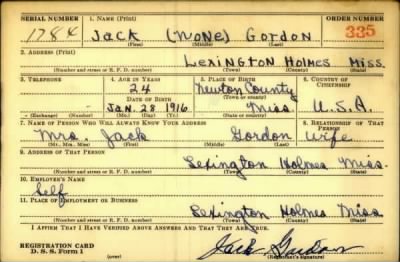 SERIAL NUMBER 1. NAME (Print) ORDER NUMBER
1784 Jack (None) Gordon 335
(First) (Middle) (Last)
2. ADDRESS (Print)
Lexington Holmes Miss.
(Number and street or R. F. D. number) (Town) (County) (State)
3. TELEPHONE 4. AGE IN YEARS 5. PLACE OF BIRTH 6. COUNTRY OF CITIZENSHIP
24 Newton County
DATE OF BIRTH (Town or county)
Jan. 28 1916 Miss. U.S.A.
(Exchange) (Number) (Mo.) (Day) (Yr.) (State or country)
7. NAME OF PERSON WHO WILL ALWAYS KNOW YOUR ADDRESS 8. RELATIONSHIP OF THAT PERSON
Mrs. Jack Gordon wife
(Mr., Mrs., Miss) (First) (Middle) (Last)
9. ADDRESS OF THAT PERSON
Lexington Holmes Miss.
(Number and street or R. F. D. number) (Town) (County) (State)
10. EMPLOYER'S NAME
Self
11. PLACE OF EMPLOYMENT OR BUSINESS
Lexington Holmes Miss
(Number and street or R. F. D. number) (Town) (County) (State)
I AFFIRM THAT I HAVE VERIFIED ABOVE ANSWERS AND THAT THEY ARE TRUE.
REGISTRATION CARD
D. S. S. Form 1 (over) Jack Gordon
(Registrant's signature)